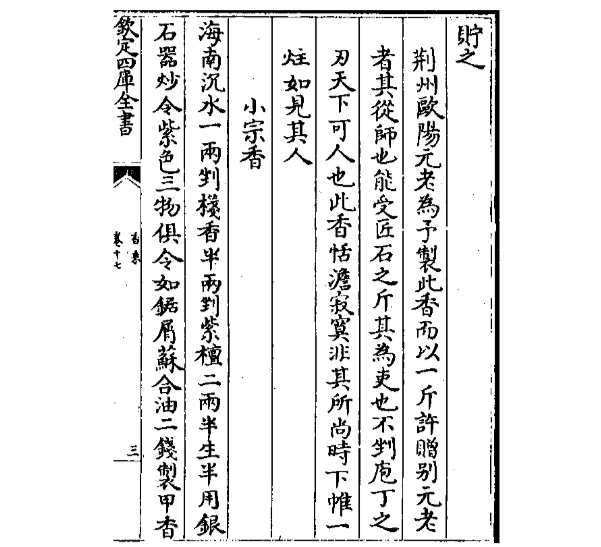 貯之
荆州歐陽元老為予製此香而以一斤許贈别元老
者其從師也能受匠石之斤其為吏也不剉庖丁之
刃天下可人也此香恬澹寂寞非其所尚時下帷一
炷如見其人
小宗香
海南沉水一兩剉棧香半兩剉紫檀二兩半生半用銀
石器炒令紫色三物俱令如鋸屑蘇合油二錢製甲香
欽定四庫全書
香乘
卷十七
三